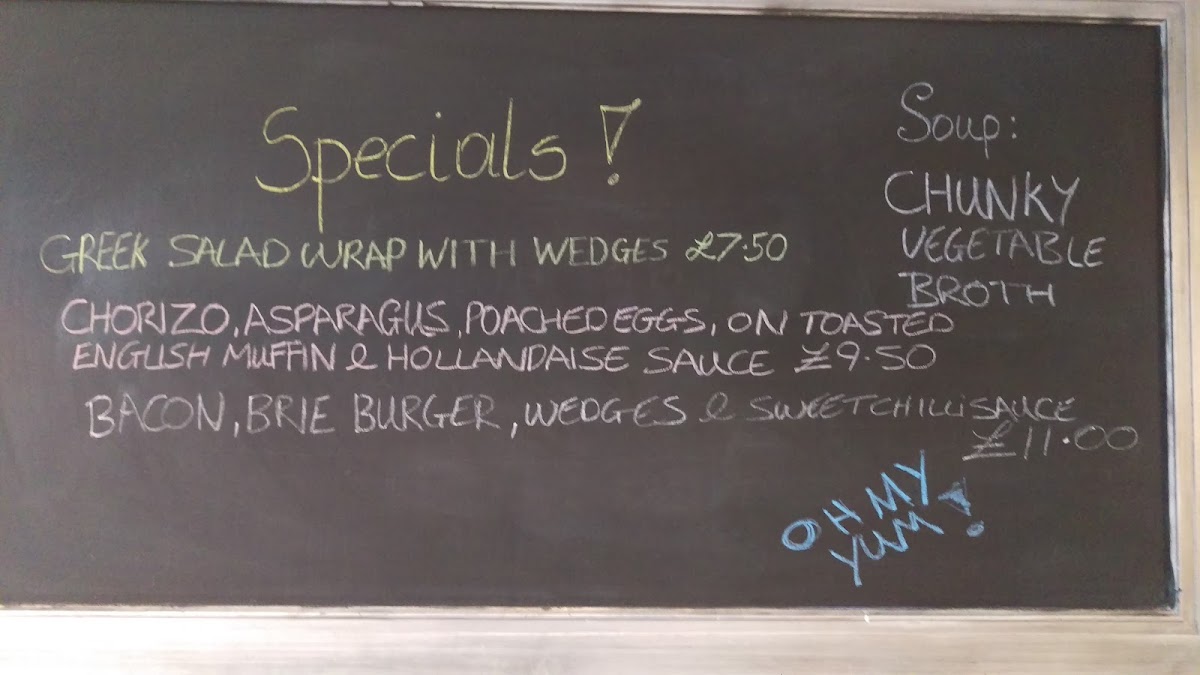 Specials!
GREEK SALAD WRAP WITH WEDGES £7.50
CHORIZO, ASPARAGUS, POACHED EGGS, ON TOASTED
ENGLISH MUFFIN & HOLLANDAISE SAUCE £9.50
BACON, BRIE BURGER, WEDGES & SWEET CHILLI SAUCE
£11.00
Soup:
CHUNKY
VEGETABLE
BROTH
OH MY
YUM!